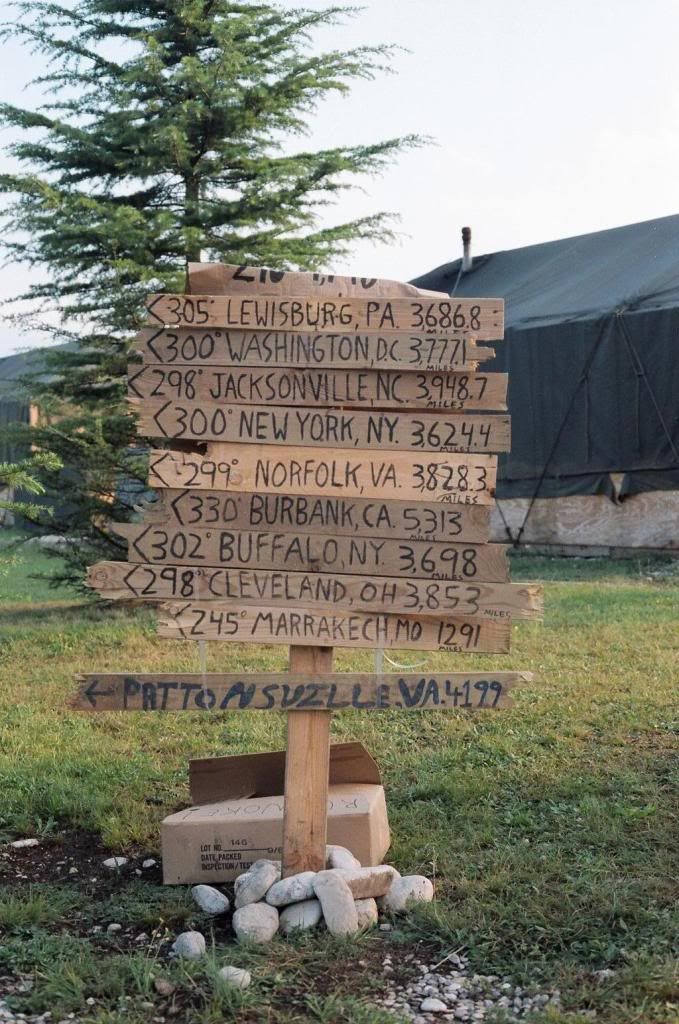 <305° LEWISBURG, PA. 3,686.8 MILES
<300° WASHINGTON, D.C. 3,777.1 MILES
<298° JACKSONVILLE, NC. 3,948.7 MILES
<300° NEW YORK, NY. 3,624.4 MILES
<299° NORFOLK, VA. 3,828.3 MILES
<330° BURBANK, CA. 5,313
<302° BUFFALO, NY. 3,698 MILES
<298° CLEVELAND, OH 3,853 MILES
<245° MARRAKECH, MO 1291 MILES
← PATTONSUZLLE. VA. 4199
LOT NO. 146
DATE PACKED
INSPECTION/TEST